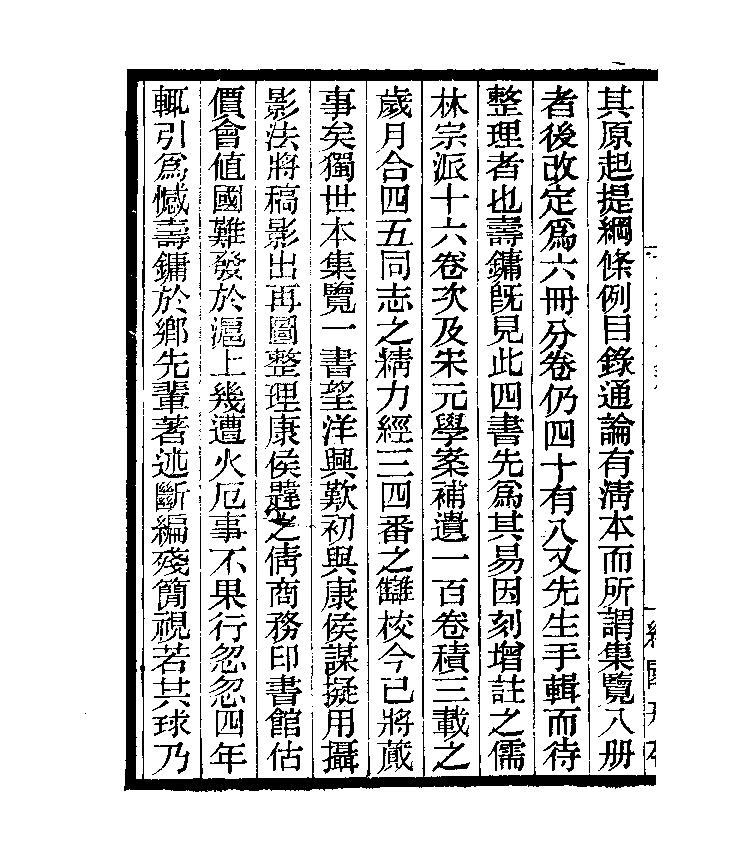 其原起提綱條例目錄通論有淸本而所謂集覽八册
者後改定爲六冊分卷仍四十有八又先生手輯而待
整理者也壽鏞旣見此四書先爲其易因刻增註之儒
林宗派十六卷次及宋元學案補遺一百卷積三載之
歲月合四五同志之精力經三四番之讎校今已將蕆
事矣獨世本集覽一書望洋興歎初與康侯謀擬用攝
影法將稿影出再圖整理康侯韙之倩商務印書館估
價會値國難發於滬上幾遭火厄事不果行忽忽四年
輒引爲憾壽鏞於鄕先輩著述斷編殘簡視若共球乃